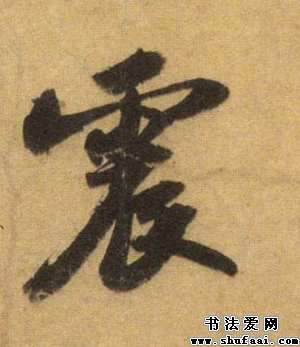 震
书法爱网
www.shufaai.com